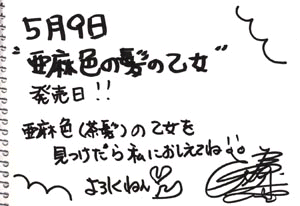 5月9日
"亜麻色の髪の乙女"
発売日!!
亜麻色(茶髪)の乙女を
見つけだら私におしえてね!!
よろしくねん